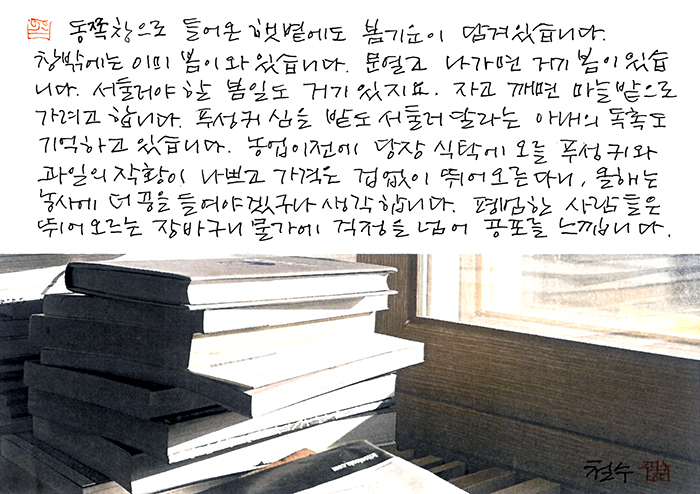 동쪽창으로 들어온 햇볕에도 봄기운이 담겨있습니다.
창밖에는 이미 봄이 와 있습니다. 문열고 나가면 거기 봄이 있습
니다. 서둘러야 할 봄일도 거기 있지요. 자고 깨면 마늘밭으로
가려고 합니다. 푸성귀 심을 밭도 서둘러 달라는 아내의 독촉도
기억하고 있습니다. 농업이전에 당장 식탁에 오늘 푸성귀와
과일의 작황이 나쁘고 가격은 겁없이 뛰어오른다니, 올해는
농사에 더 공을 들여야겠구나 생각합니다. 평범한 사람들은
뛰어오르는 장바구니 물가에 걱정을 넘어 공포를 느낍니다.
철수